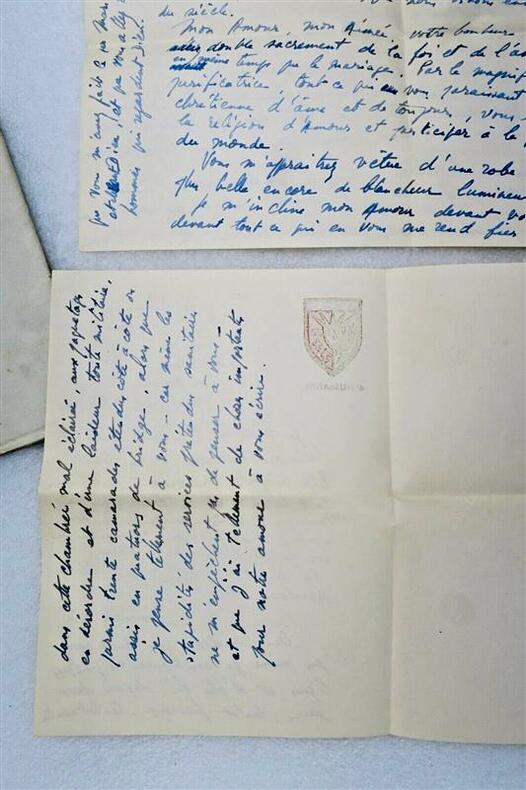 du siècle.
Mon Amour, mon Aimée, votre bonheur
double sacrement de la foi et de l'a
en même temps que le mariage. Par le magnif
purificatrice, tout ce qui en vous paraissait
chrétienne d'âme et de toujours, vous
la religion d'Amour et participer à le
du monde.
Vous m'apparaîtrez vêtue d'une robe
plus belle encore de blancheur lumineu
Je m'incline mon Amour devant vo
devant tout ce qui en vous me rend fier
que vous m'avez fait
et Dieu, et que vous
hommes qui regardent Dieu.
dans cette chambrée mal éclairée, aux paquetages
en désordre et d'une laideur toute militaire,
parmi trente camarades étendus côte à côte ou
assis en parties de bridge, alors que
je pense tellement à vous – car même les
stupidités des services prétendus sanitaires
ne m'empêchent pas de penser à vous –
et que j'ai tellement de choses importantes
pour notre amour à vous écrire.